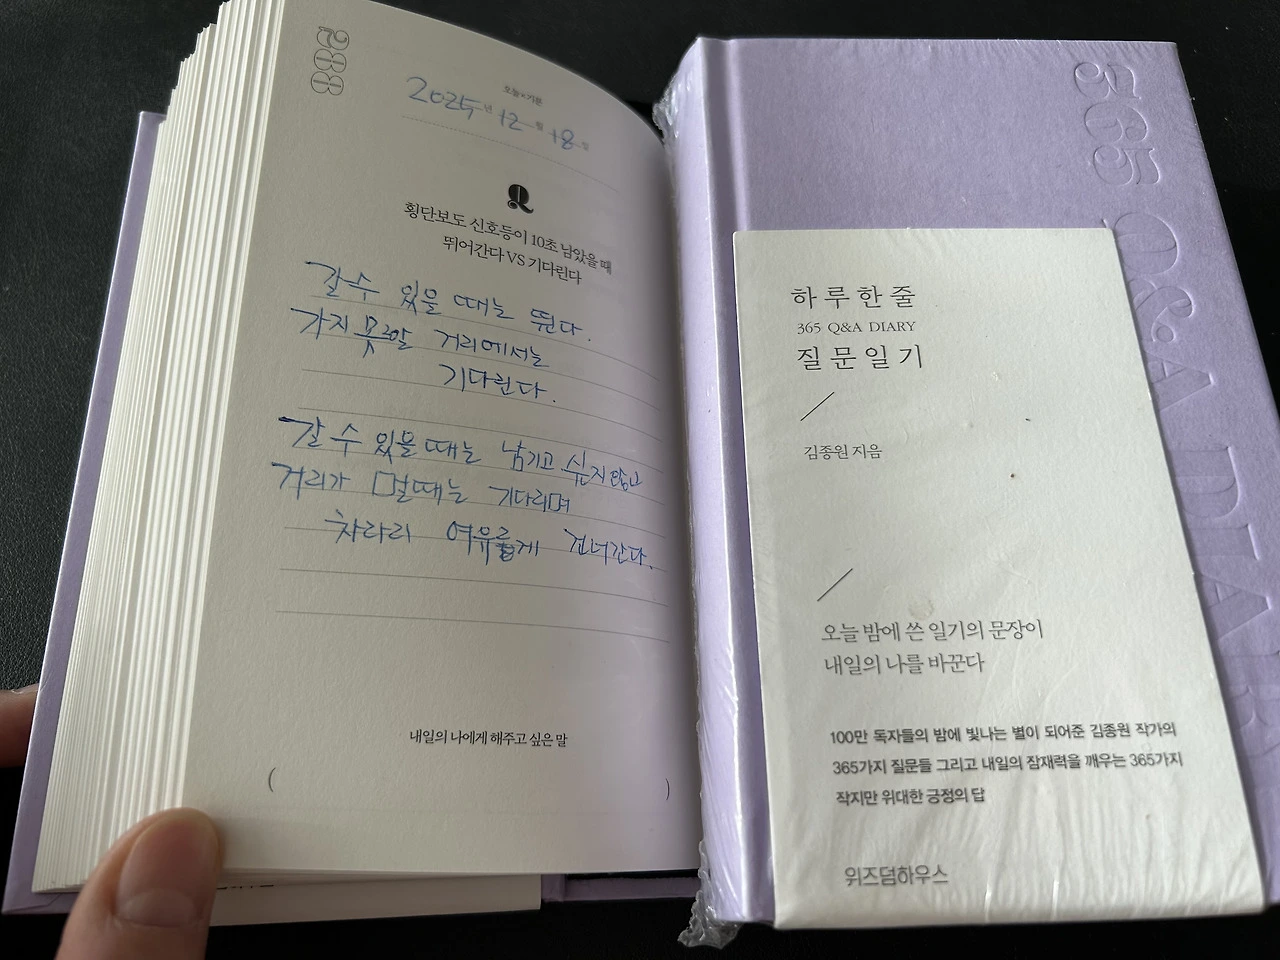 288
오늘의 기분
2025년 12월 18일
Q
횡단보도 신호등이 10초 남았을 때
뛰어간다 VS 기다린다
갈 수 있을 때는 뛴다.
가지 못할 거리에서는
기다린다.
갈 수 있을 때는 남기고 싶지 않고
거리가 멀때는 기다리며
차라리 여유롭게 건너간다.
내일의 나에게 해주고 싶은 말
( )
365 Q&A DIARY
하루 한 줄
365 Q&A DIARY
질문 일기
김종원 지음
오늘 밤에 쓴 일기의 문장이
내일의 나를 바꾼다
100만 독자들의 밤에 빛나는 별이 되어준 김종원 작가의
365가지 질문들 그리고 내일의 잠재력을 깨우는 365가지
작지만 위대한 긍정의 답
위즈덤하우스